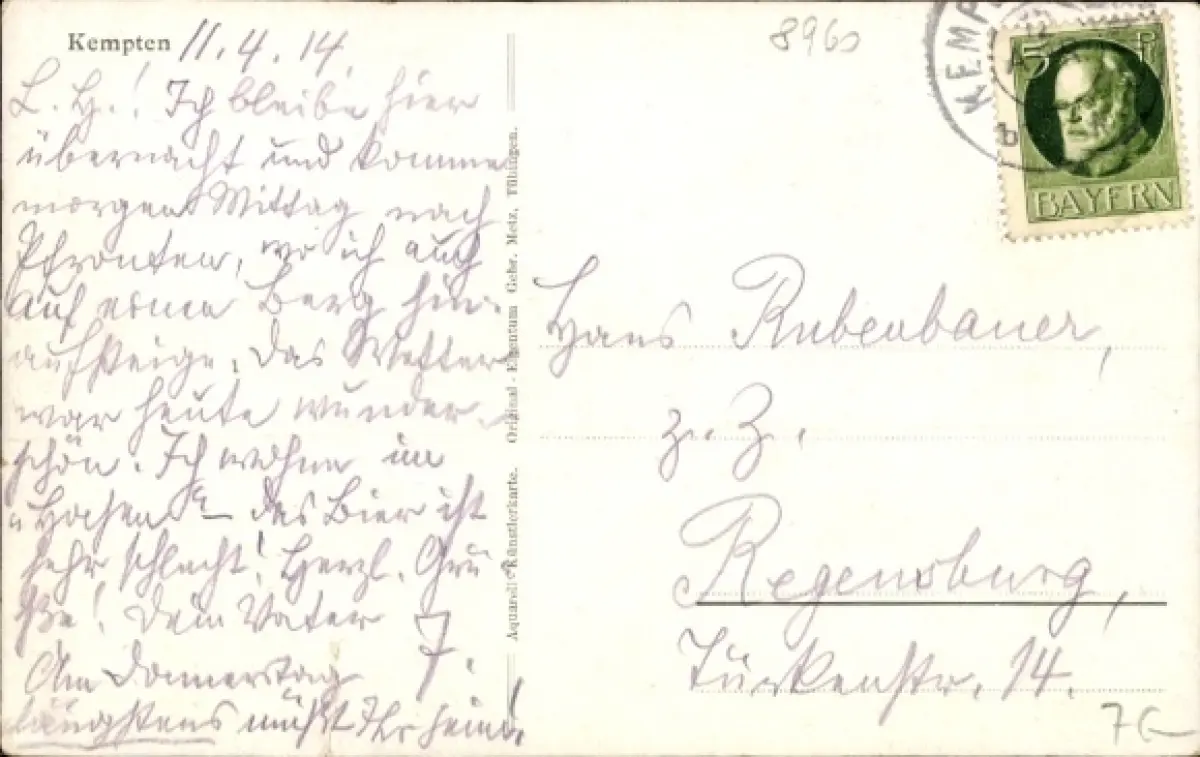 Kempten 11.4.14.
L. H.! Ich bleibe hier
übernacht und komme
morgen Mittag nach
Pfronten, wo ich auch
auf einen Berg hin-
aufsteige. Das Wetter
war heute wunder-
schön. Ich wohne im
das Bier ist
hier schlecht! Herzl. Grü-
ße! Dein Vater
Am Donnerstag
längstens müßt Ihr heim!
Aquarell-Künstlerkarte. Original-Eigentum Gebr. Metz, Tübingen.
8960
KEMP
5 Pf
BAYERN
Hans Rubenbauer,
z. Z.
Regensburg,
Türkenstr. 14.